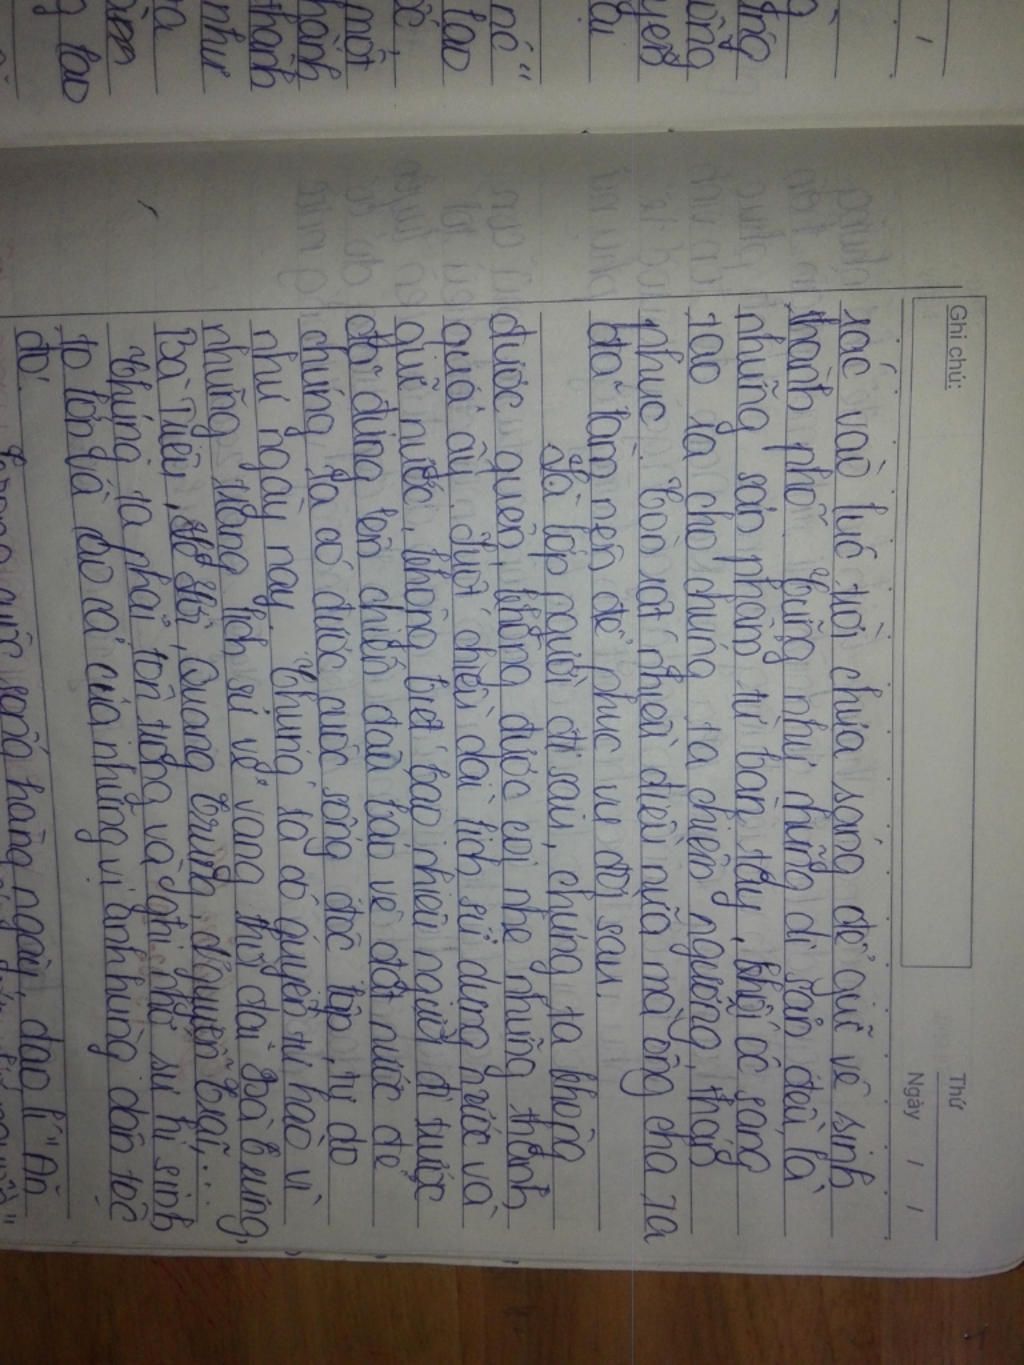 Ghi chú:
Thứ
Ngày / /
rác vào lúc trời chưa sáng để giữ vệ sinh
thành phố. Cũng như những di sản đều là
những sản phẩm từ bàn tay, khối óc sáng
tạo ra cho chúng ta chiêm ngưỡng, thán
phục. Còn rất nhiều điều nữa mà ông cha ta
đã làm nên để phục vụ đời sau.
Là lớp người đi sau, chúng ta không
được quên, không được coi nhẹ những thành
quả ấy. Suốt chiều dài lịch sử dựng nước và
giữ nước, không biết bao nhiêu người đi trước
đã đứng lên chiến đấu bảo vệ đất nước để
chúng ta có được cuộc sống độc lập, tự do
như ngày nay. Chúng ta có quyền tự hào vì
những trang lịch sử vẻ vang thời đại Bà Trưng,
Bà Triệu, Quang Trung, Nguyễn Trãi,...
Chúng ta phải tôn trọng và ghi nhớ sự hi sinh
to lớn và cao cả của những vị anh hùng dân tộc
đó.
cuộc sống hằng ngày, đạo lí "Ăn
một
thành
như
lao